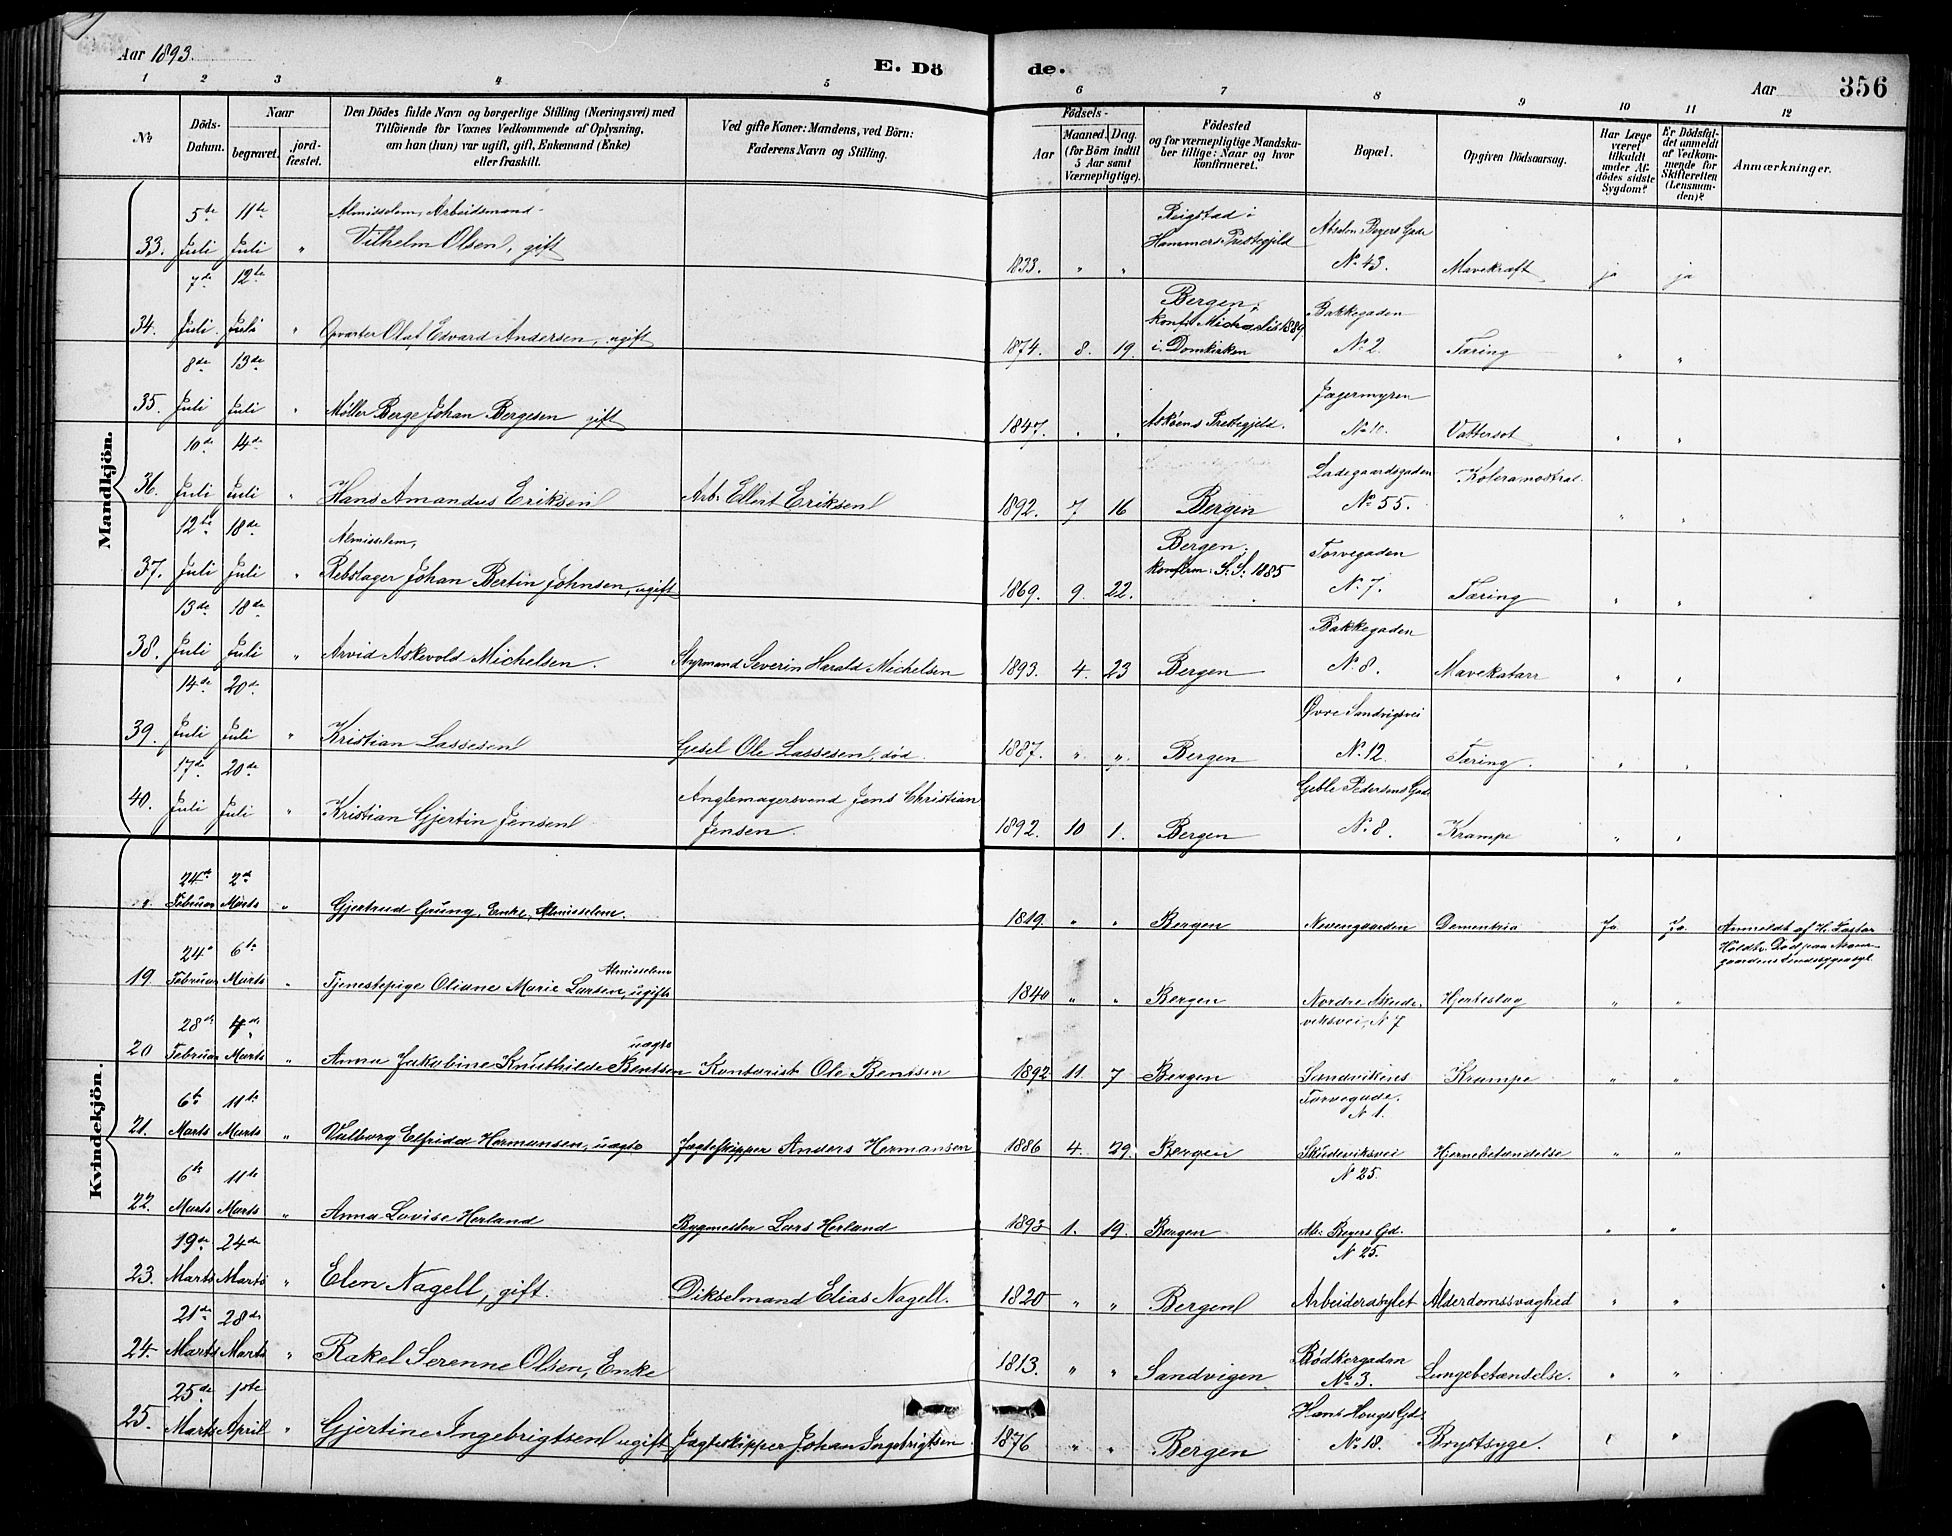 Aar 1893.
E. Dö de.
Aar
356
1 2 3 4 5 6 7 8 9 10 11 12
No.
Döds-Datum.
Naar
begravet.
jord-fæstet.
Den Dödes fulde Navn og borgerlige Stilling (Næringsvei) med
Tilföiende for Voxnes Vedkommende af Oplysning,
om han (hun) var ugift, gift, Enkemand (Enke)
eller fraskilt.
Ved gifte Koner: Mandens, ved Börn:
Faderens Navn og Stilling.
Födsels-
Aar
Maaned. Dag.
(for Börn indtil
5 Aar samt
Værnepligtige).
Födested
og for værnepligtige Mandska-
ber tillige: Naar og hvor
konfirmeret.
Bopæl.
Opgiven Dödsaarsag.
Har Læge
været
tilkaldt
under Af-
dödes sidste
Sygdom?
Er Dödsfal-
det anmeldt
af Vedkom-
mende for
Skifteretten
(Lensman-
den)?
Anmærkninger.
Mandkjön.
5te 11te Almisselem, Arbeidsmand Reigstad i Absalon Beyers Gade
33. Juli Juli " Vilhelm Olsen, gift 1833. " " Hammers Prestegjeld No 43. Mavekræft ja ja
7de 12te Bergen, Bakkegaden
34. Juli Juli " Opvarter Olaf Edvard Andersen, ugift 1874. 8. 19. konf. Michaelis 1889 i Domkirken No 2. Tæring " "
8de 13de Jægermyren
35. Juli Juli " Møller Berge Johan Bergesen gift 1847. " " Askøens Prestegjeld. Vattersot " "
10de 14de Ladegaardsgaden
36. Juli Juli " Hans Amandus Eriksen Arb. Ellert Eriksen 1892. 7 16 Bergen No 55. " "
12te 18de Almisselem, Bergen, Torvegaden
37. Juli Juli " Rebslager Johan Bertin Johnsen, ugift 1869. 9. 22. konfirm. S. S. 1885 No 7. Tæring " "
13de 18de Bakkegaden
38. Juli Juli " Arvid Askevold Michelsen. Styrmand Severin Harald Michelsen 1893. 4. 23 Bergen No 8. Mavekatarr " "
14de 20de Øvre Sandvigsvei
39. Juli Juli " Kristian Lassesen Gesel Ole Lassesen, død. 1887. " " Bergen No 12. Tæring. " "
17de 20de Anglemagersvend Jens Christian Geble Pedersens Gade
40. Juli Juli " Kristian Gjertin Jensen Jensen 1892. 10 1. Bergen No 8. Krampe " "
Kvindekjön.
24de 2de
" Februar Marts " Gjertrud Grung, Enke, Almisselem. 1819. " " Bergen Nevengaarden Dementia Ja Ja. Anmeldt af
24de 6te Almisselem
19 Februar Marts " Tjenestepige Oliane Marie Larsen, ugift 1840 " " Bergen Nordre Skude-viksvei, N 7 Hjerteslag " "
28de 4de uægte
20 Februar Marts " Anna Jakobine Knuthilde Bentsen Kontorist Ole Bentsen 1892 11. 7 Bergen Sandvikens Torvegade. N 1. Krampe " "
6te 11te
21. Marts Marts " Valborg Elfrida Hermansen, uægte Jægteskipper Anders Hermansen 1886 4. 29. Bergen Skudeviksvei N 25. Hjernebetændelse " "
6te 11te
22. Marts Marts " Anna Lovise Herland Bygmester Lars Herland 1893 1. 19. Bergen Ab. Beyers Gd. N 25. " "
19de 24de
23. Marts Marts " Elen Nagell, gift. Dikselmand Elias Nagell. 1820 " " Bergen Arbeiderasylet Alderdomssvaghed " "
21de 28de
24. Marts Marts " Rakel Serenne Olsen, Enke 1813. " " Sandvigen Bødkergaden No 3. Lungebetændelse. " "
25de 1ste
25. Marts April " Gjertine Ingebrigtsen ugift Jægteskipper Johan Ingebrigtsen. 1876 " " Bergen Hans Hauges Gd. No 18. Brystsyge. " "